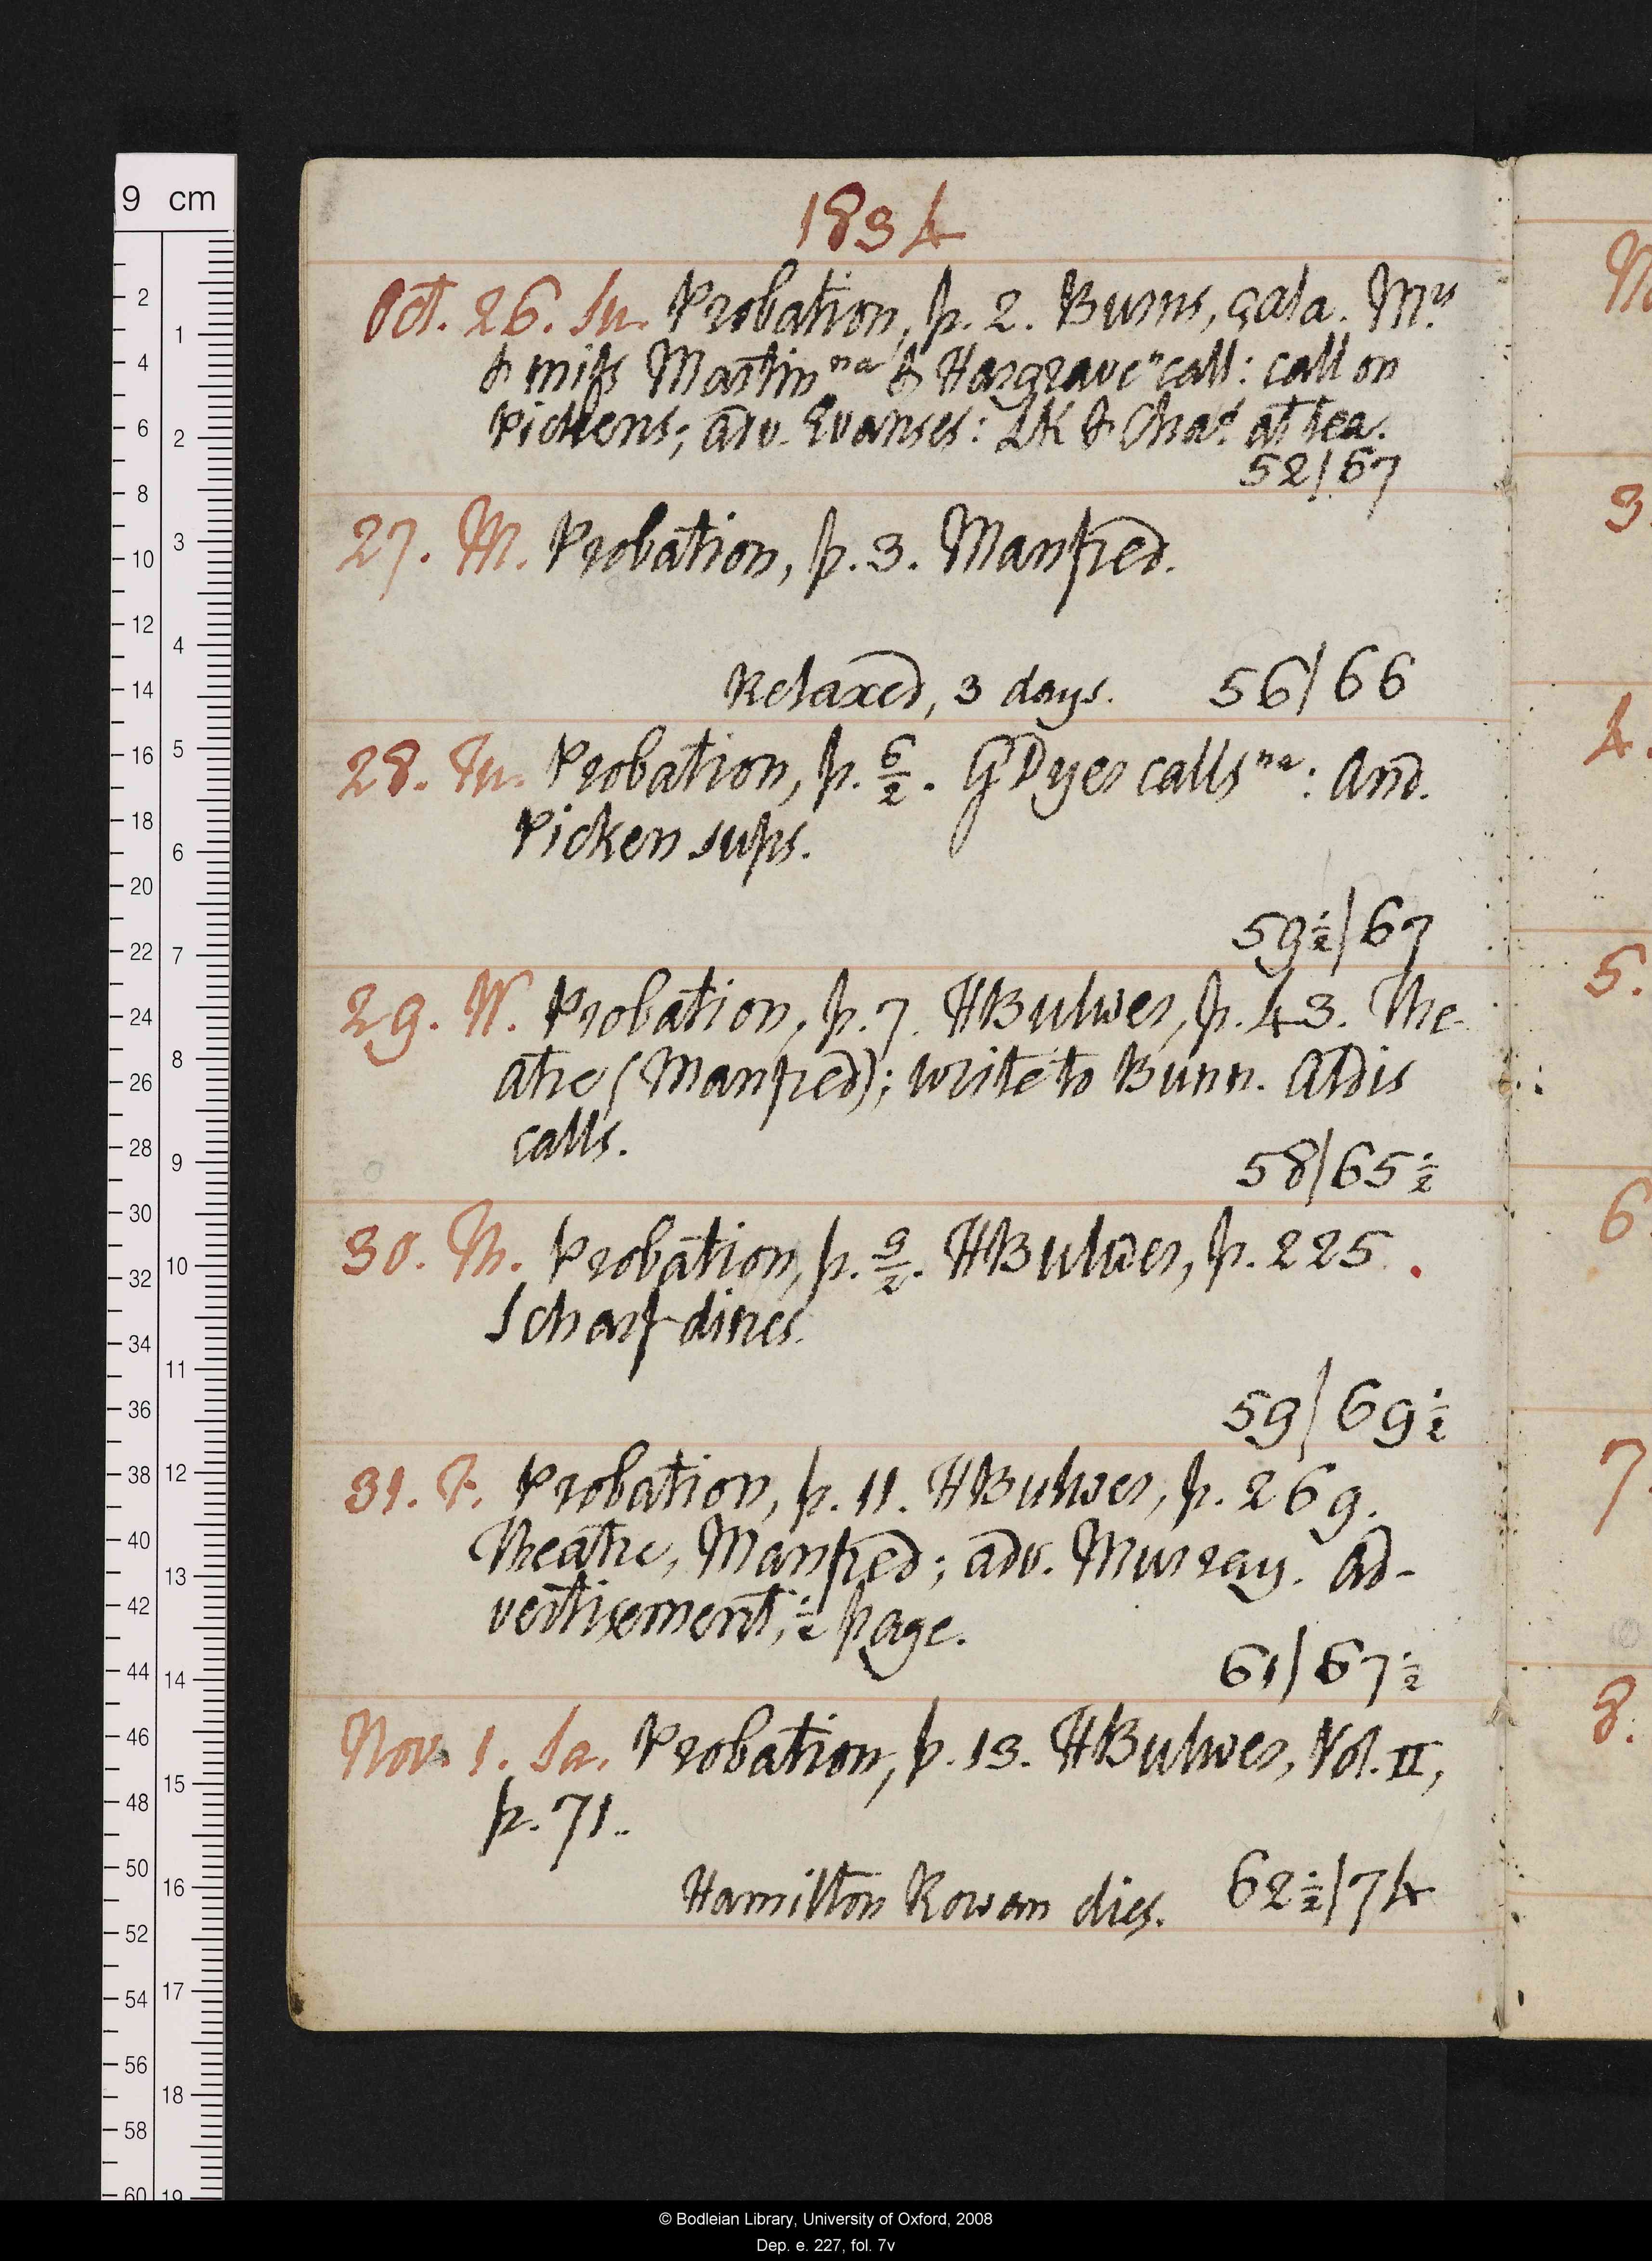 9 cm
1834
Oct. 26. Su. Probation, p. 2. Burns, çala. Mrs
& miss Martin na & Hargrave n call: call on
Pickens; adv. Evanses: LK & Chas at tea.
52/67
27. M. Probation, p. 3. Manfred.
Relaxed, 3 days. 56/66
28. Tu. Probation, p. 6/2. GDyer calls na: And.
Picken sups.
59½/67
29. W. Probation, p. 7. HBulwer, p. 43. The-
atre (Manfred); write to Bunn. Aldis
calls.
58/65½
30. Th. Probation, p. 9/2. HBulwer, p. 225.
Scharf dines.
59/69½
31. F. Probation, p. 11. HBulwer, p. 269.
Theatre, Manfred; adv. Murray. Ad-
vertisement, ½ page.
61/67½
Nov. 1. Sa. Probation, p. 13. HBulwer, Vol. II,
p. 71.
Hamilton Rowan dies. 62½/74
M
3
4.
5.
6.
7.
8.
© Bodleian Library, University of Oxford, 2008
Dep. e. 227, fol. 7v